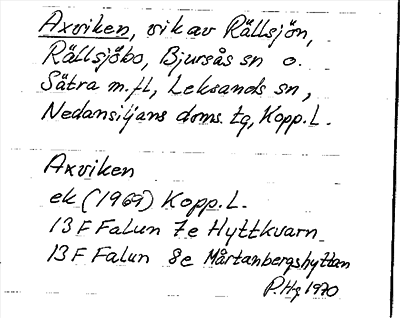 Axviken, vik av Rällsjön,
Rällsjöbo, Bjursås sn o.
Sätra m.fl, Leksands sn,
Nedansiljans doms. tg, Kopp. L.
Axviken
ek (1969) Kopp. L.
13 F Falun 7e Hyttkvarn
13 F Falun 8e Mårtanbergshyttan
P.Hg 1970